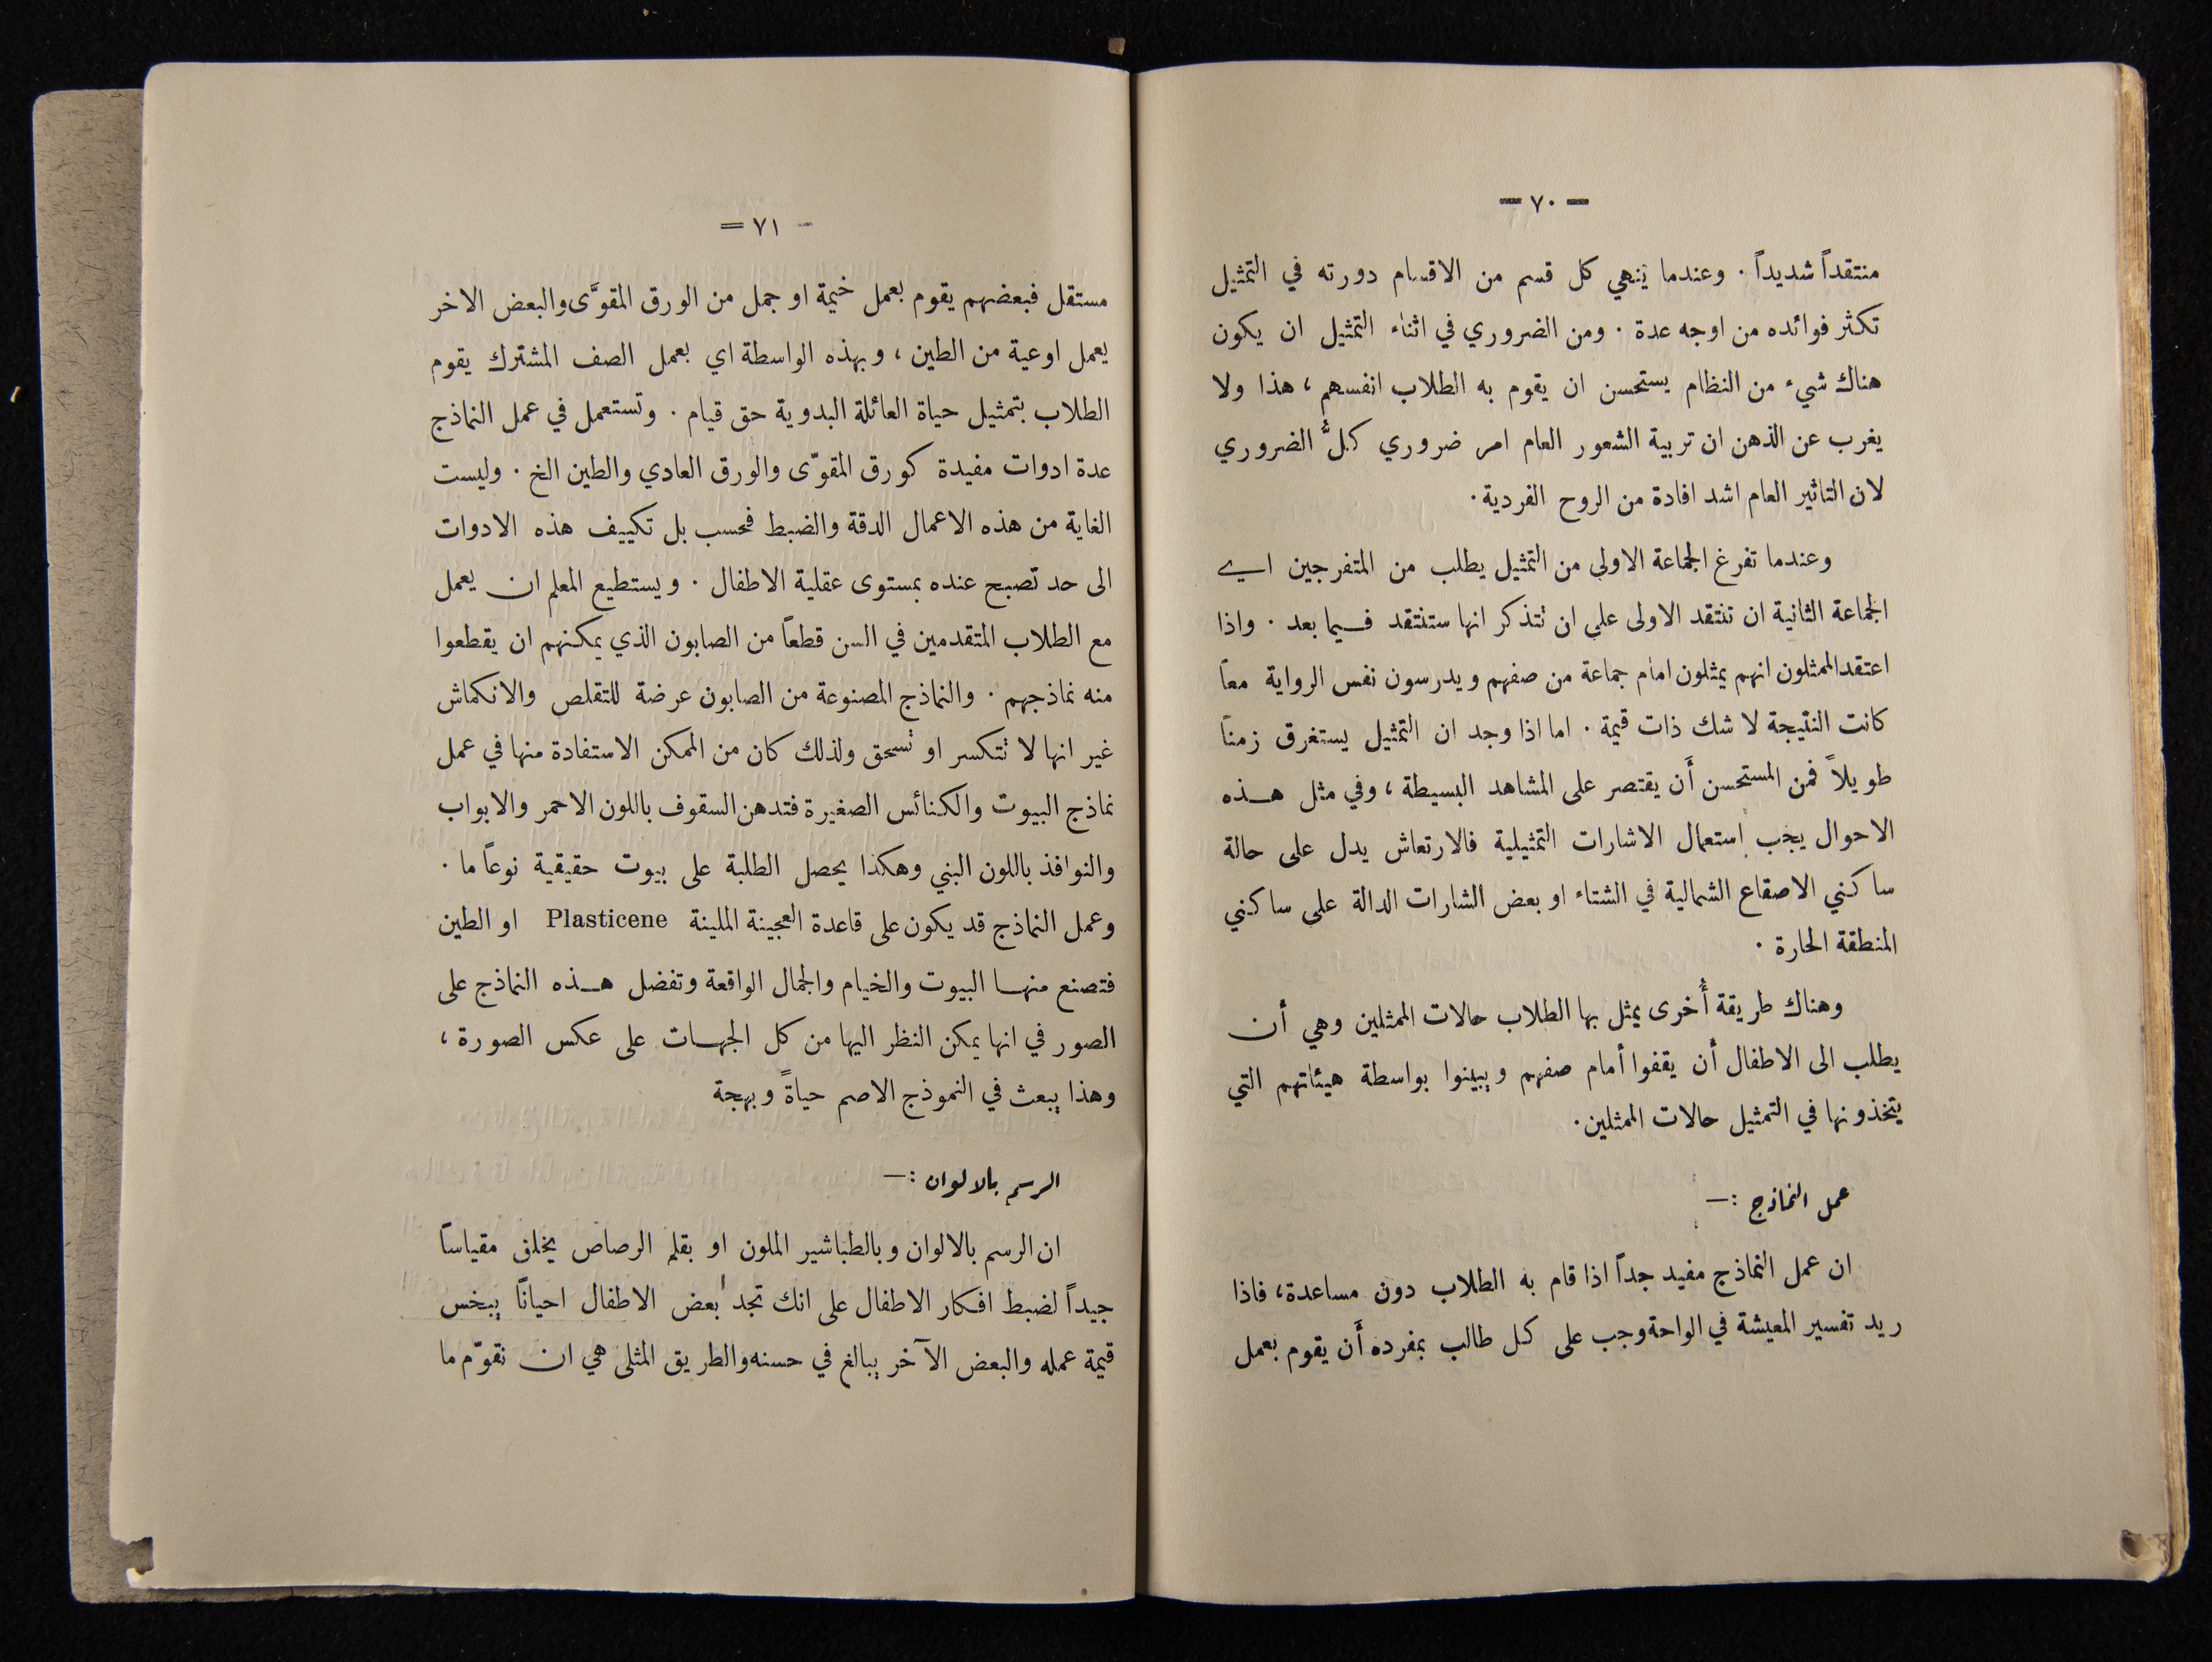 — ٧٠ —
منتقداً شديداً . وعندما ينهي كل قسم من الاقسام دورته في التمثيل
تكثر فوائده من اوجه عدة . ومن الضروري في اثناء التمثيل ان يكون
هناك شيء من النظام يستحسن ان يقوم به الطلاب انفسهم ، هذا ولا
يغرب عن الذهن ان تربية الشعور العام امر ضروري كلُّ الضروري
لان التاثير العام اشد افادة من الروح الفردية .
وعندما تفرغ الجماعة الاولى من التمثيل يطلب من المتفرجين اي
الجماعة الثانية ان تنتقد الاولى على ان تتذكر انها ستنتقد فيما بعد . واذا
اعتقد الممثلون انهم يمثلون امام جماعة من صفهم ويدرسون نفس الرواية معاً
كانت النتيجة لا شك ذات قيمة . اما اذا وجد ان التمثيل يستغرق زمناً
طويلاً فمن المستحسن أن يقتصر على المشاهد البسيطة ، وفي مثل هذه
الاحوال يجب استعمال الاشارات التمثيلية فالارتعاش يدل على حالة
ساكني الاصقاع الشمالية في الشتاء او بعض الشارات الدالة على ساكني
المنطقة الحارة .
وهناك طريقة أُخرى يمثل بها الطلاب حالات الممثلين وهي أن
يطلب الى الاطفال أن يقفوا أمام صفهم ويبينوا بواسطة هيئاتهم التي
يتخذونها في التمثيل حالات الممثلين .
عمل النماذج :—
ان عمل النماذج مفيد جداً اذا قام به الطلاب دون مساعدة ، فاذا
ريد تفسير المعيشة في الواحة وجب على كل طالب بمفرده أَن يقوم بعمل
- ٧١ =
مستقل فبعضهم يقوم بعمل خيمة او جمل من الورق المقوَّى والبعض الاخر
يعمل اوعية من الطين ، وبهذه الواسطة اي بعمل الصف المشترك يقوم
الطلاب بتمثيل حياة العائلة البدوية حق قيام . وتستعمل في عمل النماذج
عدة ادوات مفيدة كورق المقوّى والورق العادي والطين الخ . وليست
الغاية من هذه الاعمال الدقة والضبط فحسب بل تكييف هذه الادوات
الى حد تصبح عنده بمستوى عقلية الاطفال . ويستطيع المعلم ان يعمل
مع الطلاب المتقدمين في السن قطعاً من الصابون الذي يمكنهم ان يقطعوا
منه نماذجهم . والنماذج المصنوعة من الصابون عرضة للتقلص والانكماش
غير انها لا تتكسر او تسحق ولذلك كان من الممكن الاستفادة منها في عمل
نماذج البيوت والكنائس الصغيرة فتدهن السقوف باللون الاحمر والابواب
والنوافذ باللون البني وهكذا يحصل الطلبة على بيوت حقيقية نوعاً ما .
وعمل النماذج قد يكون على قاعدة العجينة الملينة Plasticene او الطين
فتصنع منها البيوت والخيام والجمال الواقعة وتفضل هذه النماذج على
الصور في انها يمكن النظر اليها من كل الجهات على عكس الصورة ،
وهذا يبعث في النموذج الاصم حياةً وبهجة
الرسم بالالوان :—
ان الرسم بالالوان وبالطباشير الملون او بقلم الرصاص يخلق مقياساً
جيداً لضبط افكار الاطفال على انك تجد بعض الاطفال احياناً يبخس
قيمة عمله والبعض الآخر يبالغ في حسنه والطريق المثلى هي ان نقوّم ما